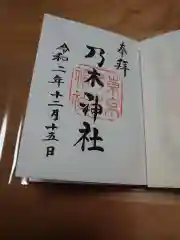 奉拝
乃木神社
令和二年十二月十五日